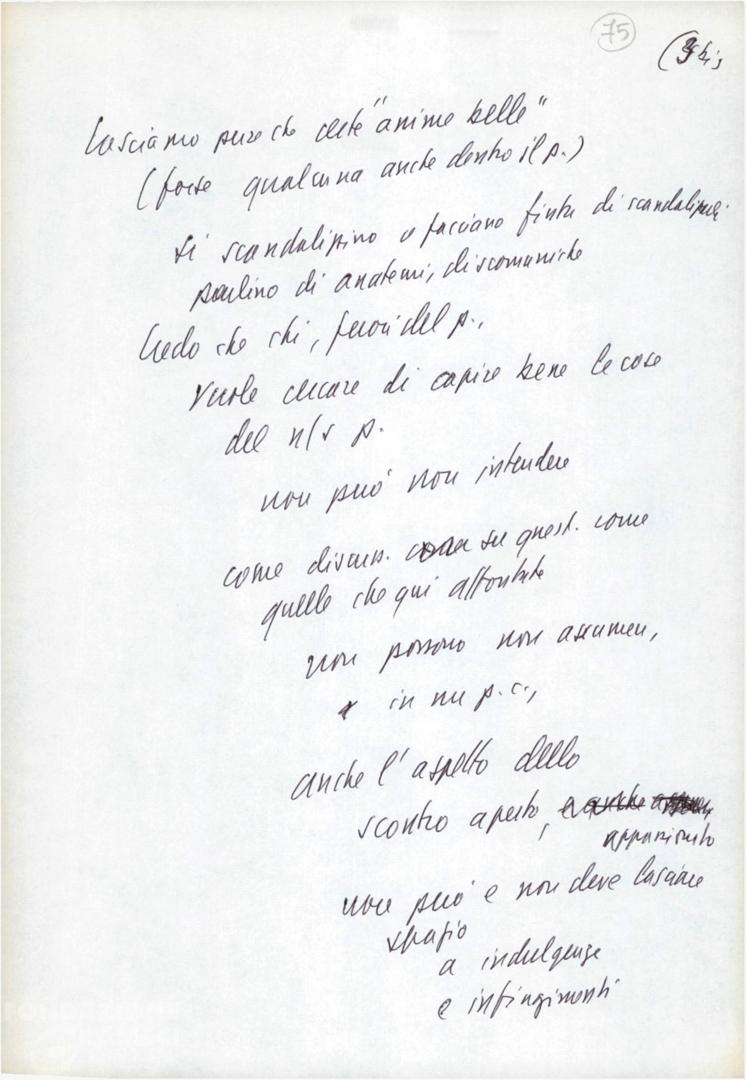 75
Lasciamo pure che certe "anime belle"
(forse qualcuna anche dentro il p.)
si scandalizzino o facciano finta di scandalizzarsi
parlino di anatemi, di scomuniche
Credo che chi, fuori del p.,
vuole cercare di capire bene le cose
del n/s p.
non può non intendere
come discuss. su quest. come
quelle che qui affrontate
non possono non assumere,
in un p.c.,
anche l'aspetto dello
scontro aperto, e anche
appassionato
non può e non deve lasciare
spazio
a indulgenze
e infingimenti